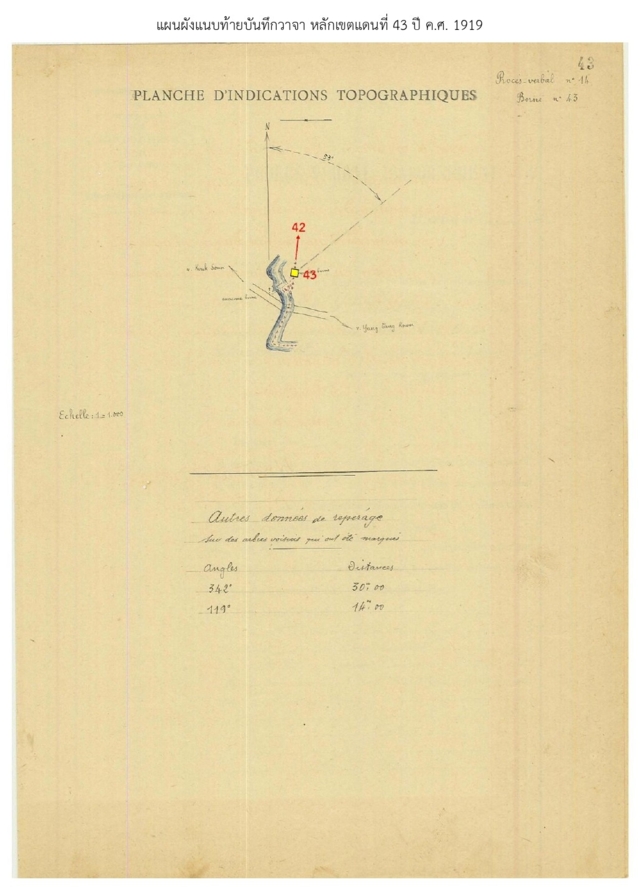 แผนผังแนบท้ายบันทึกวาจา หลักเขตแดนที่ 43 ปี ค.ศ. 1919
43
Procès-verbal n° 14
Borne n° 43
PLANCHE D'INDICATIONS TOPOGRAPHIQUES
N
42
43
Echelle
Autres données de repérage
sur des arbres voisins qui ont été marqués
Angles Distances
342° 30m 00
119° 14m 00